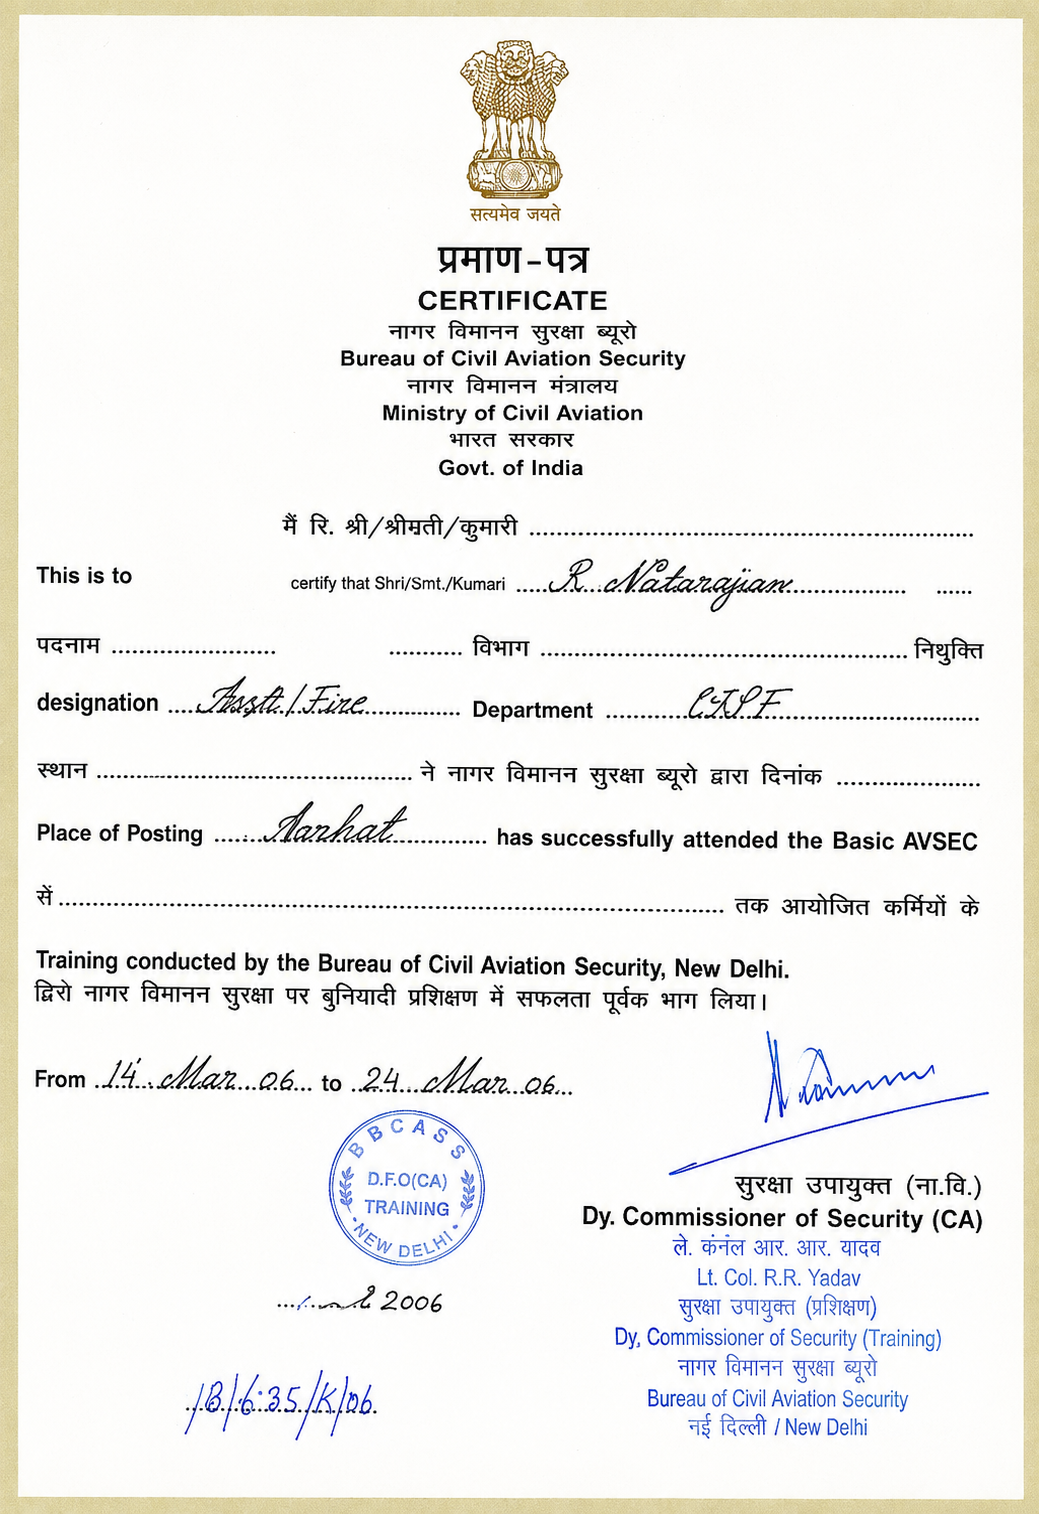 सत्यमेव जयते
प्रमाण-पत्र
CERTIFICATE
नागर विमानन सुरक्षा ब्यूरो
Bureau of Civil Aviation Security
नागर विमानन मंत्रालय
Ministry of Civil Aviation
भारत सरकार
Govt. of India
मैं रि. श्री/श्रीमती/कुमारी
This is to certify that Shri/Smt./Kumari R. Natarajian
पदनाम विभाग नियुक्ति
designation Asstt/Fire Department CISF
स्थान ने नागर विमानन सुरक्षा ब्यूरो द्वारा दिनांक
Place of Posting has successfully attended the Basic AVSEC
सें तक आयोजित कर्मियों के
Training conducted by the Bureau of Civil Aviation Security, New Delhi.
द्विरो नागर विमानन सुरक्षा पर बुनियादी प्रशिक्षण में सफलता पूर्वक भाग लिया।
From 14 Mar 06 to 24 Mar 06
BBCASS
D.F.O(CA)
TRAINING
NEW DELHI
सुरक्षा उपायुक्त (ना.वि.)
Dy. Commissioner of Security (CA)
ले. कंनल आर. आर. यादव
Lt. Col. R.R. Yadav
सुरक्षा उपायुक्त (प्रशिक्षण)
Dy, Commissioner of Security (Training)
नागर विमानन सुरक्षा ब्यूरो
Bureau of Civil Aviation Security
नई दिल्ली / New Delhi
2006
/B/6:35/K/06.